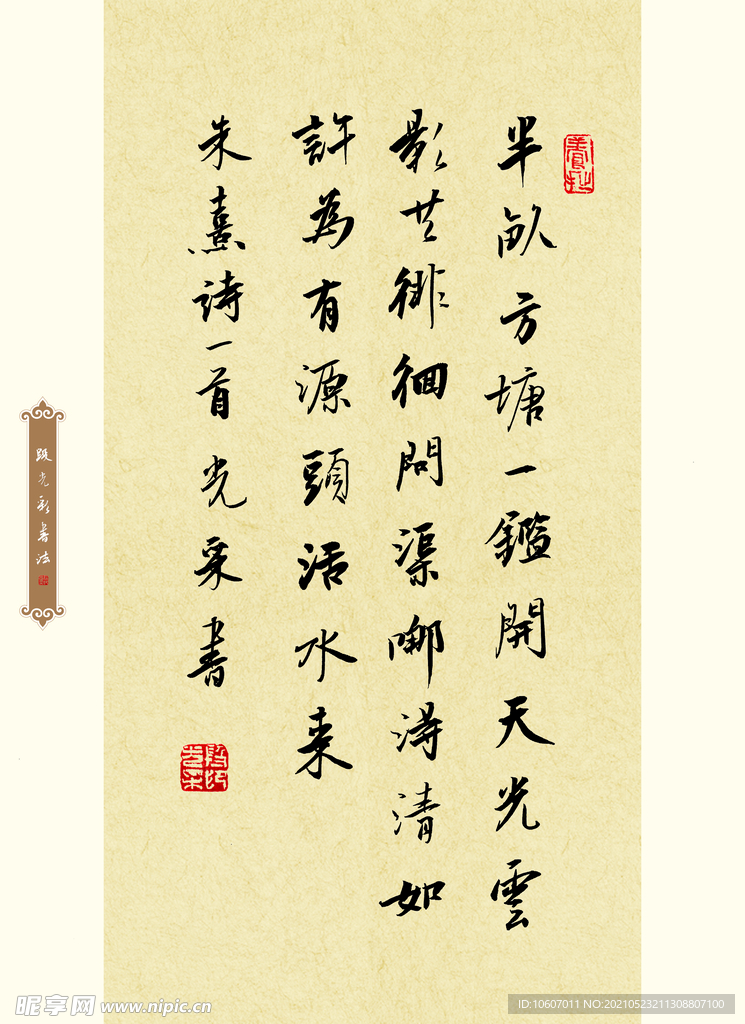 半畝方塘一鑑開天光雲
影共徘徊問渠哪得清如
許為有源頭活水來
朱熹詩一首 光采書
昵享网 www.nipic.cn
ID:10607011 NO:20210523211308807100